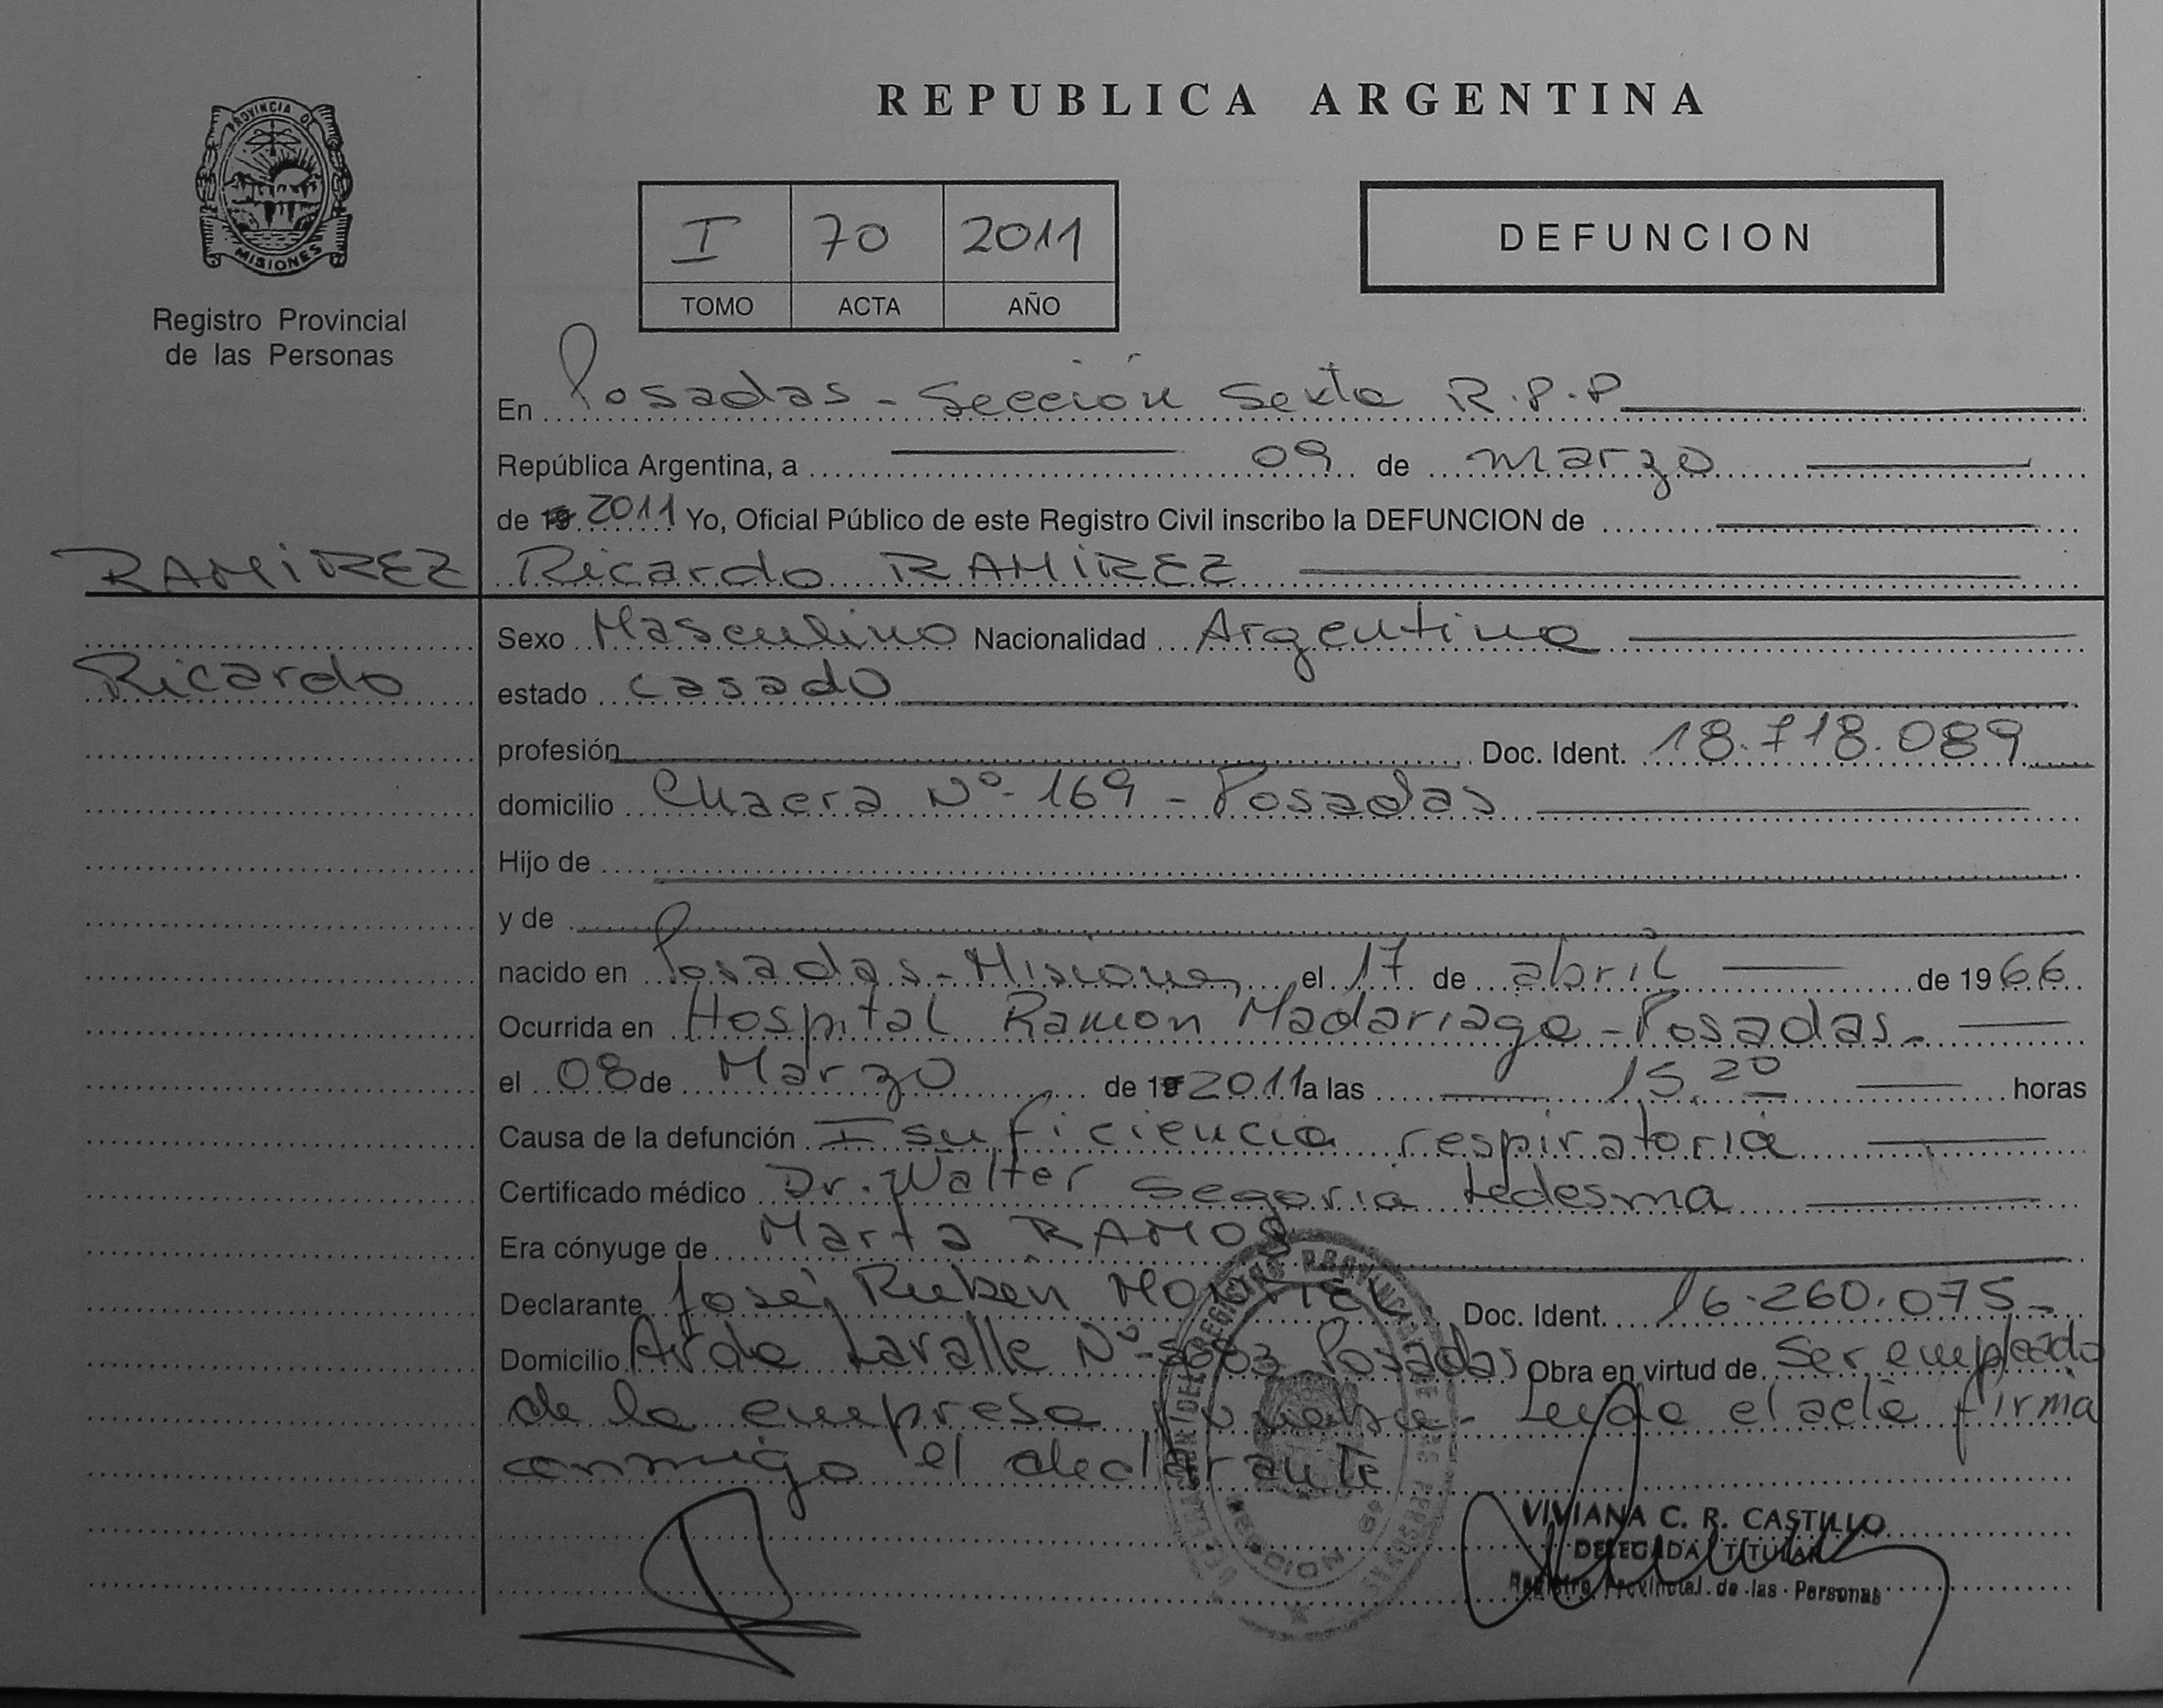 REPUBLICA ARGENTINA
PROVINCIA DE
MISIONES
Registro Provincial
de las Personas
I 70 2011
TOMO ACTA AÑO
DEFUNCION
En Posadas - Sección Sexta R.P.P
República Argentina, a 09 de Marzo
de 19 2011 Yo, Oficial Público de este Registro Civil inscribo la DEFUNCION de
RAMIREZ
Ricardo RAMIREZ
Ricardo
Sexo Masculino Nacionalidad Argentina
estado casado
profesión Doc. Ident. 18.718.089
domicilio Chacra Nº 169 - Posadas
Hijo de
y de
nacido en Posadas - Misiones el 17 de abril de 1966
Ocurrida en Hospital Ramon Madariaga - Posadas -
el 08 de Marzo de 19 2011 a las 15,20 horas
Causa de la defunción Isuficiencia respiratoria
Certificado médico Dr. Walter Segovia Ledesma
Era cónyuge de Marta RAMOS
Declarante José, Rubén MONTIEL Doc. Ident. 16.260.075 -
Domicilio Avda Lavalle Nº Posadas Obra en virtud de Ser empleado
de la empresa - Leída el acta firma
conmigo el declarante
VIVIANA C. R. CASTILLO
DELEGADA TITULAR
Registro Provincial de las Personas